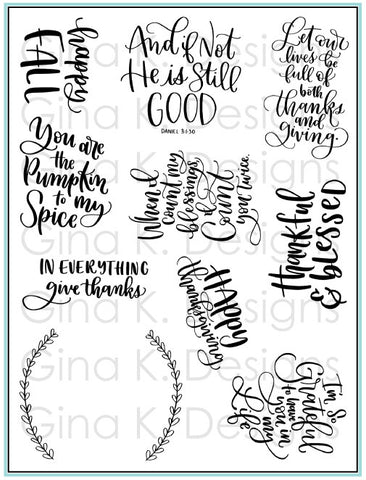 happy
FALL
And if Not
He is Still
GOOD
DANIEL 3:1-30
Let our
lives be
full of
both
thanks
and
giving.
You are
the
Pumpkin
to my
Spice
When I
count my
blessings,
I
Count
you twice.
thankful
& blessed
IN EVERYTHING
give thanks
HAPPY
Thanksgiving
I'm
So
Grateful
to have
you in
my
Life
Gina K. Designs
Gina K. Designs
Gina K. Designs
Gina K. Designs